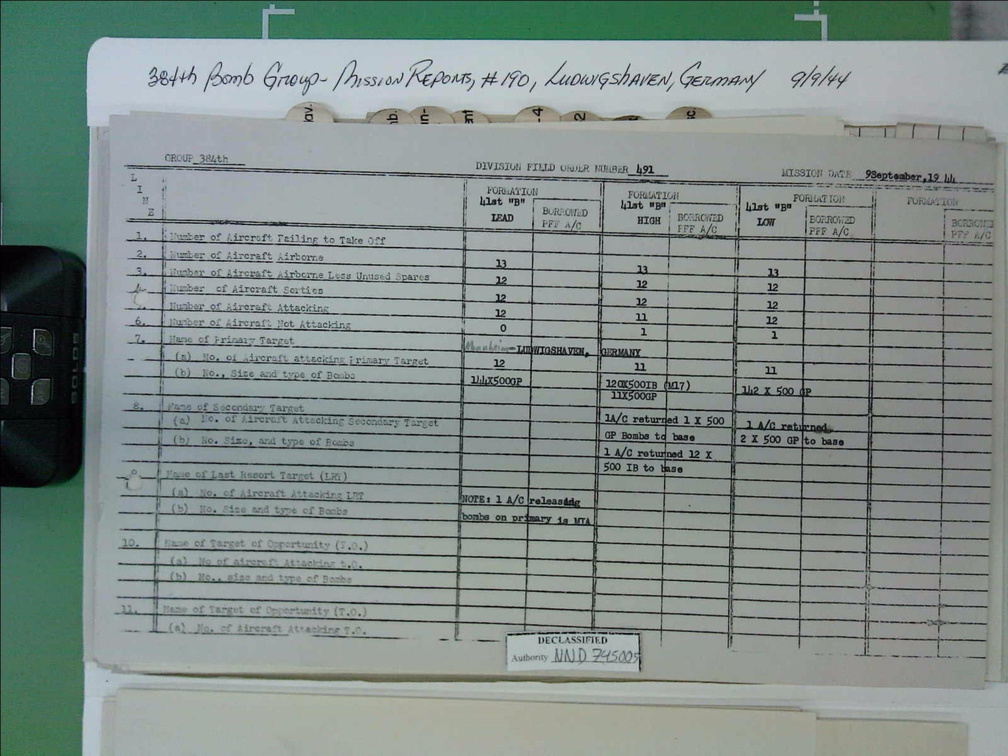 384th Bomb Group - Mission Reports, #190, Ludwigshaven, Germany 9/9/44
GROUP 384th DIVISION FIELD ORDER NUMBER 491 MISSION DATE 9September,19 44
L I N E
FORMATION 41st "B" LEAD BORROWED PFF A/C
FORMATION 41st "B" HIGH BORROWED PFF A/C
FORMATION 41st "B" LOW BORROWED PFF A/C
FORMATION BORROWED PFF A/C
1. Number of Aircraft Failing to Take Off
2. Number of Aircraft Airborne 13 13 13
3. Number of Aircraft Airborne Less Unused Spares 12 12 12
Number of Aircraft Sorties 12 12 12
Number of Aircraft Attacking 12 11 12
6. Number of Aircraft Not Attacking 0 1 1
7. Name of Primary Target Mannheim-LUDWIGSHAVEN, GERMANY
(a) No. of Aircraft attacking Primary Target 12 11 11
(b) No., Size and type of Bombs 144X500GP 120X500IB (M17) 142 X 500 GP
11X500GP
8. Name of Secondary Target
(a) No. of Aircraft Attacking Secondary Target 1A/C returned 1 X 500 1 A/C returned
(b) No. Size, and type of Bombs GP Bombs to base 2 X 500 GP to base
1 A/C returned 12 X
Name of Last Resort Target (LRT) 500 IB to base
(a) No. of Aircraft Attacking LRT NOTE: 1 A/C releasing
(b) No. Size and type of Bombs bombs on primary is MIA
10. Name of Target of Opportunity (T.O.)
(a) No of aircraft Attacking t.O.
(b) No., size and type of Bombs
11. Name of Target of Opportunity (T.O.)
(a) No. of Aircraft Attacking T.O.
DECLASSIFIED
Authority NND 745005